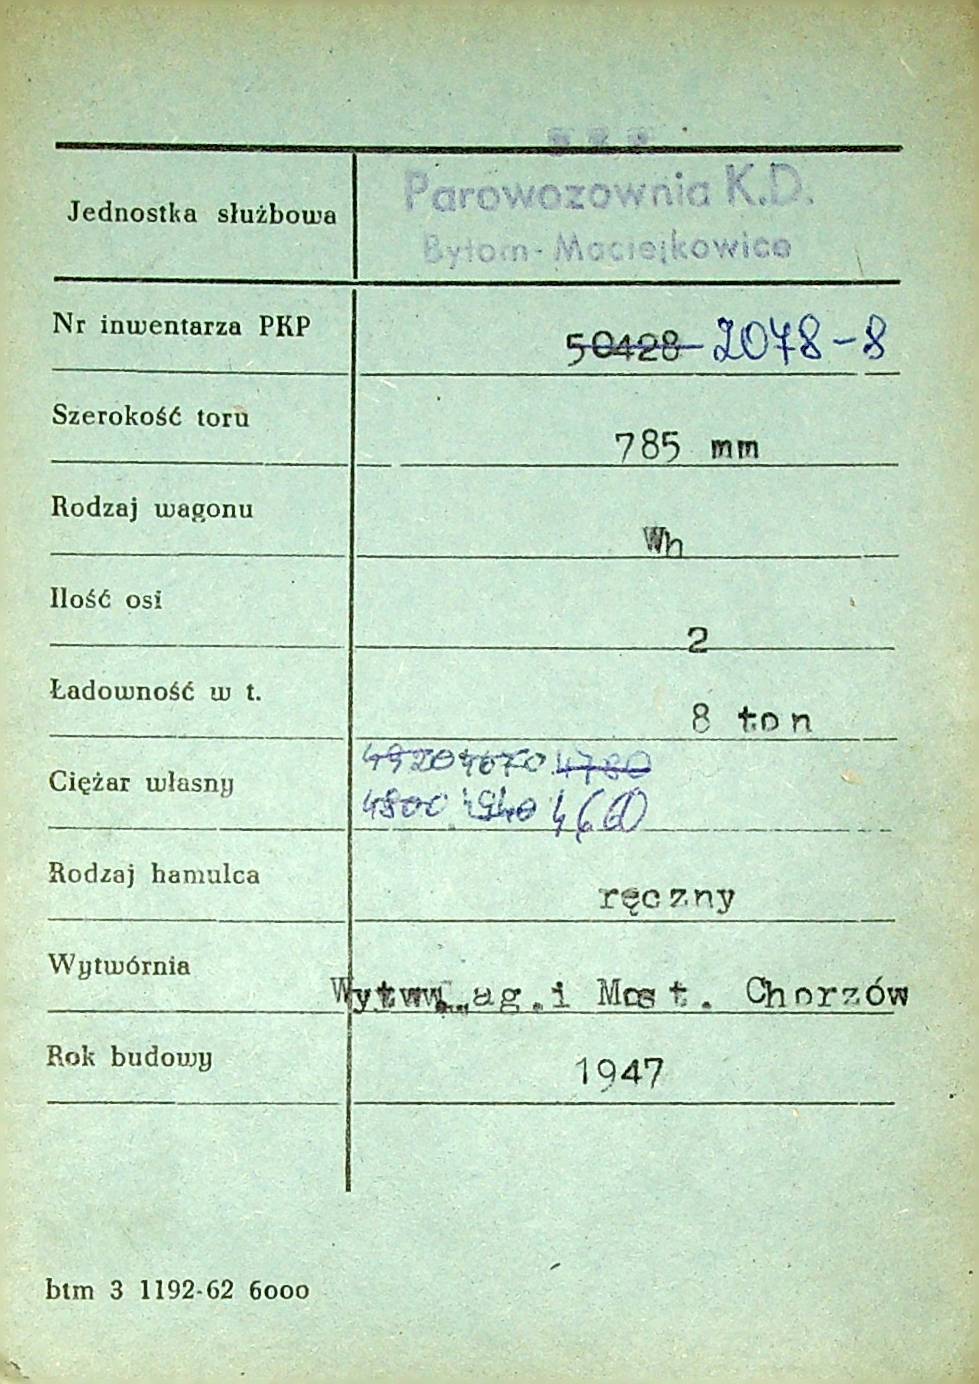 Jednostka służbowa
Parowozownia K.D.
Bytom-Maciejkowice
Nr inwentarza PKP 50428 2078-8
Szerokość toru 785 mm
Rodzaj wagonu Wh
Ilość osi 2
Ładowność w t. 8 ton
4920 4670 4780
Ciężar własny
4800 4940
Rodzaj hamulca ręczny
Wytwórnia
Wytww.ag.i Most. Chorzów
Rok budowy 1947
btm 3 1192-62 6ooo